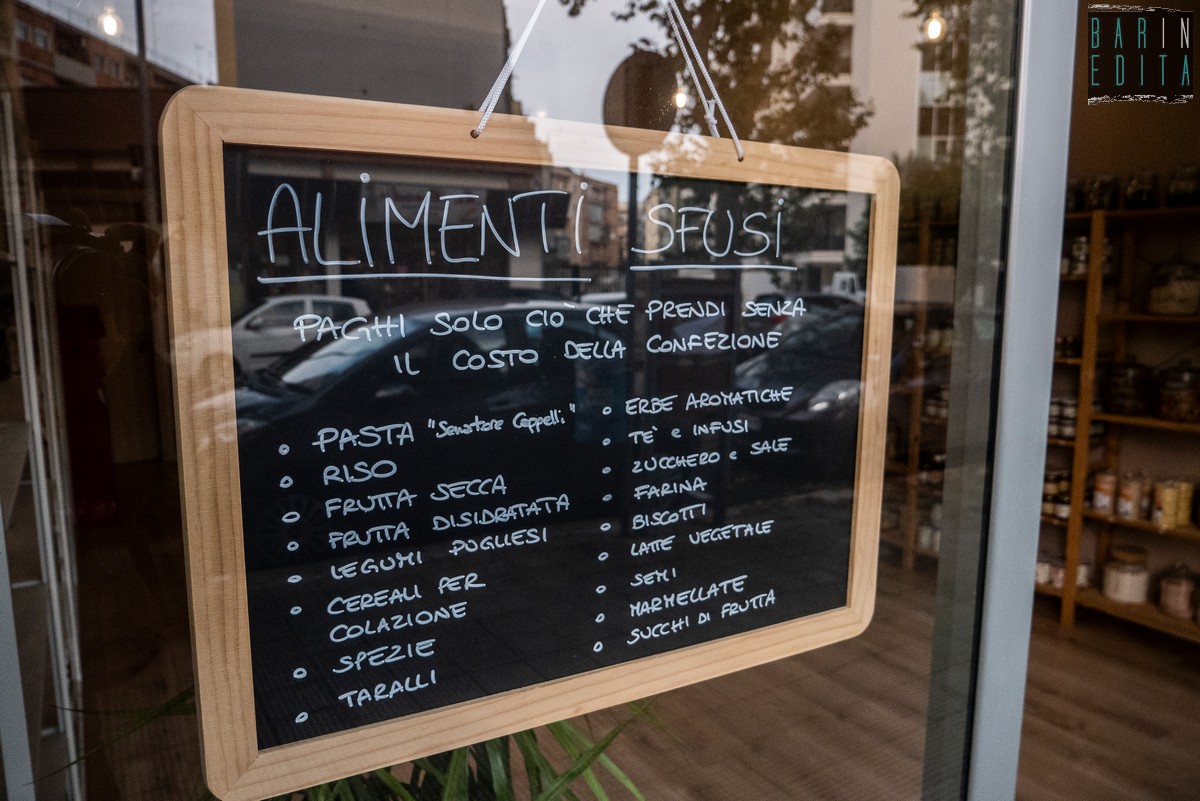 BARIN
EDITA
ALIMENTI SFUSI
PAGHI SOLO CIÒ CHE PRENDI SENZA
IL COSTO DELLA CONFEZIONE
PASTA "Senatore Cappelli"
RISO
FRUTTA SECCA
FRUTTA DISIDRATATA
LEGUMI PUGLIESI
CEREALI PER
COLAZIONE
SPEZIE
TARALLI
ERBE AROMATICHE
TE' e INFUSI
ZUCCHERO e SALE
FARINA
BISCOTTI
LATTE VEGETALE
SEMI
MARMELLATE
SUCCHI DI FRUTTA